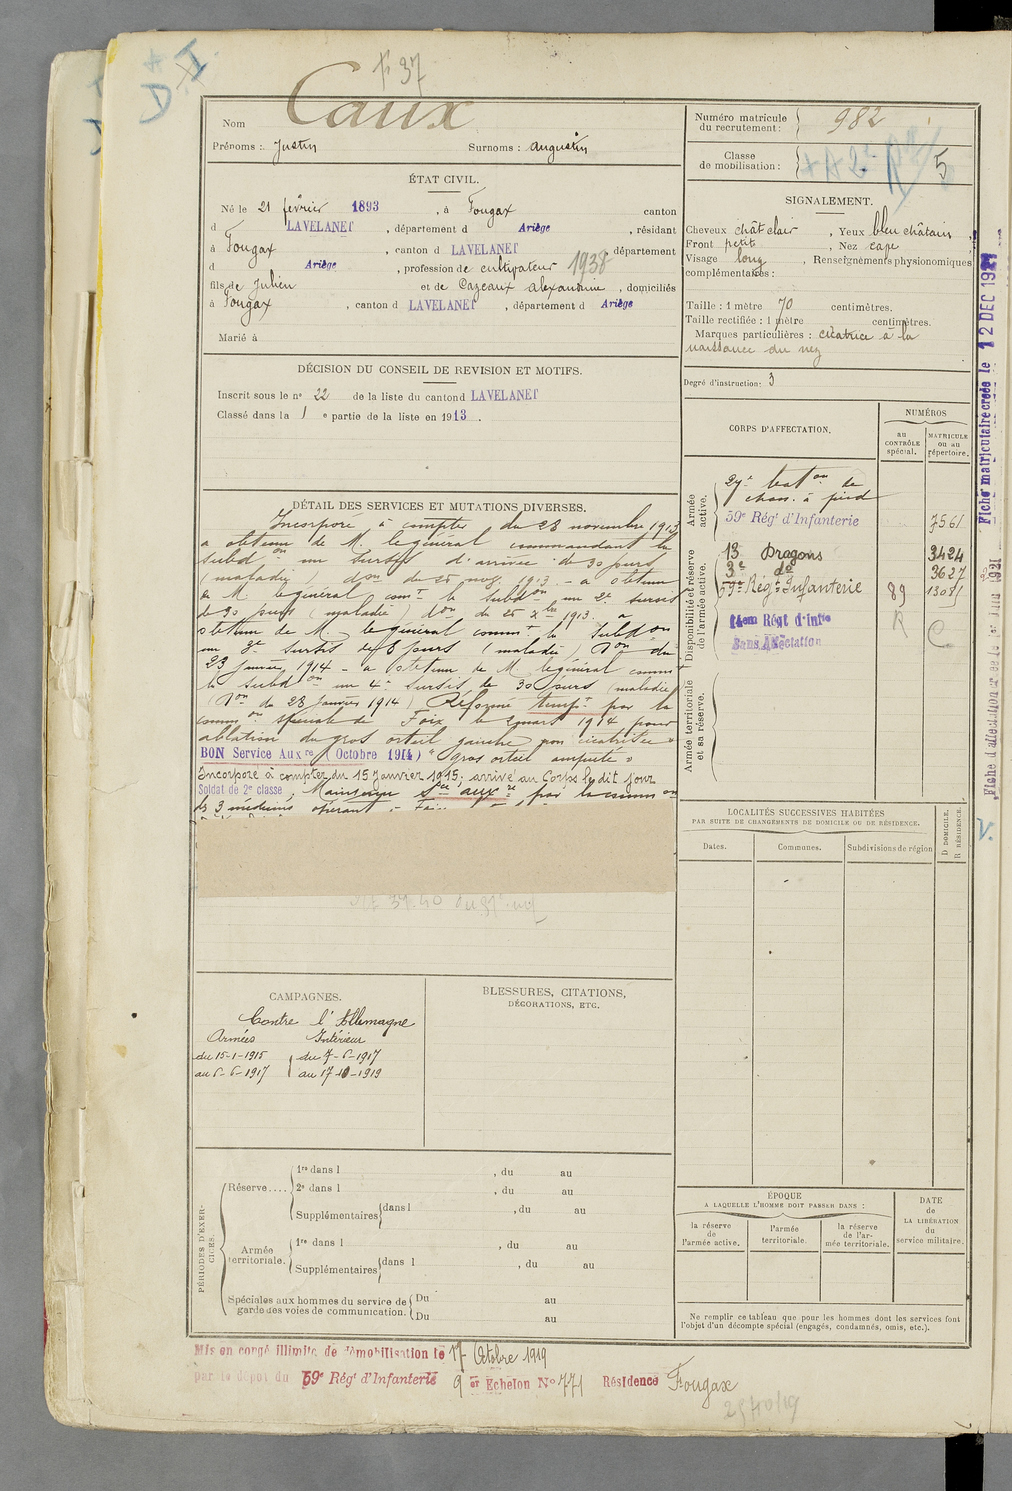 Nom Caux
Prénoms : Justin Surnoms : augustin
Numéro matricule du recrutement : 982
Classe de mobilisation : 5
ÉTAT CIVIL.
Né le 21 février 1893, à Fougax canton
d LAVELANET, département d Ariège, résidant
à Fougax, canton d LAVELANET, département
d Ariège, profession de cultivateur 1938
fils de Julien et de Cazeaux alexandrine, domiciliés
à Fougax, canton d LAVELANET, département d Ariège
Marié à
SIGNALEMENT.
Cheveux chât clair, Yeux bleu châtain
Front petit, Nez cave
Visage long, Renseignements physionomiques
complémentaires :
Taille : 1 mètre 70 centimètres.
Taille rectifiée : 1 mètre centimètres.
Marques particulières : cicatrice à la
naissance du nez
Degré d'instruction : 3
DÉCISION DU CONSEIL DE REVISION ET MOTIFS.
Inscrit sous le nº 22 de la liste du canton d LAVELANET
Classé dans la 1 e partie de la liste en 1913.
DÉTAIL DES SERVICES ET MUTATIONS DIVERSES.
Incorporé à compter du 28 novembre 1913
a obtenu de M. le général commandant la
subdon un sursis d'arrivée de 30 jours
(maladie) don du 25 nov. 1913 - a obtenu
de M. le général comt la subdon un 2e sursis
de 30 jours (maladie) don du 25 xbre 1913. a
obtenu de M. le général commt la subdon
un 3e sursis de 8 jours (maladie) Don du
23 Janvier 1914 - a obtenu de M. le général commt
la subdon un 4e sursis de 30 jours (maladie)
(Don du 28 Janvier 1914) Réformé tempre par la
common spéciale de Foix le 2 mars 1914 pour
ablation du gros orteil gauche non cicatrisée
BON Service Auxre (Octobre 1914) "gros orteil amputé"
Incorporé à compter du 15 Janvier 1915; arrivé au Corps le dit jour
Soldat de 2e classe, Maintenu Sce auxre par la common
de 3 médecins opérant
CORPS D'AFFECTATION.
NUMÉROS
au contrôle spécial.
MATRICULE ou au répertoire.
Armée active.
29e baton de
chass. à pied
59e Régt d'Infanterie 7561
Disponibilité et réserve de l'armée active.
13 Dragons 3424
3e do 3627
59e Régt Infanterie 89
14em Régt d'Infie R C
Sans Affectation
Armée territoriale et sa réserve.
LOCALITÉS SUCCESSIVES HABITÉES
PAR SUITE DE CHANGEMENTS DE DOMICILE OU DE RÉSIDENCE.
Dates. Communes. Subdivisions de région
D DOMICILE, R RÉSIDENCE.
CAMPAGNES.
Contre l'Allemagne
Armées Intérieur
du 15-1-1915 du 7-6-1917
au 6-6-1917 au 17-10-1919
BLESSURES, CITATIONS,
DÉCORATIONS, ETC.
PÉRIODES D'EXERCICES.
Réserve.... 1re dans l , du au
2e dans l , du au
Supplémentaires dans l , du au
Armée territoriale. 1re dans l , du au
Supplémentaires dans l , du au
Spéciales aux hommes du service de garde des voies de communication. Du au
Du au
ÉPOQUE
A LAQUELLE L'HOMME DOIT PASSER DANS :
la réserve de l'armée active.
l'armée territoriale.
la réserve de l'armée territoriale.
DATE de LA LIBÉRATION du service militaire.
Ne remplir ce tableau que pour les hommes dont les services font
l'objet d'un décompte spécial (engagés, condamnés, omis, etc.).
Mis en congé illimité de démobilisation le 17 Octobre 1919
par le dépôt du 59e Régt d'Infanterie 9 er Echelon No 771 Résidence Fougax
Fiche matriculaire créée le 12 DEC